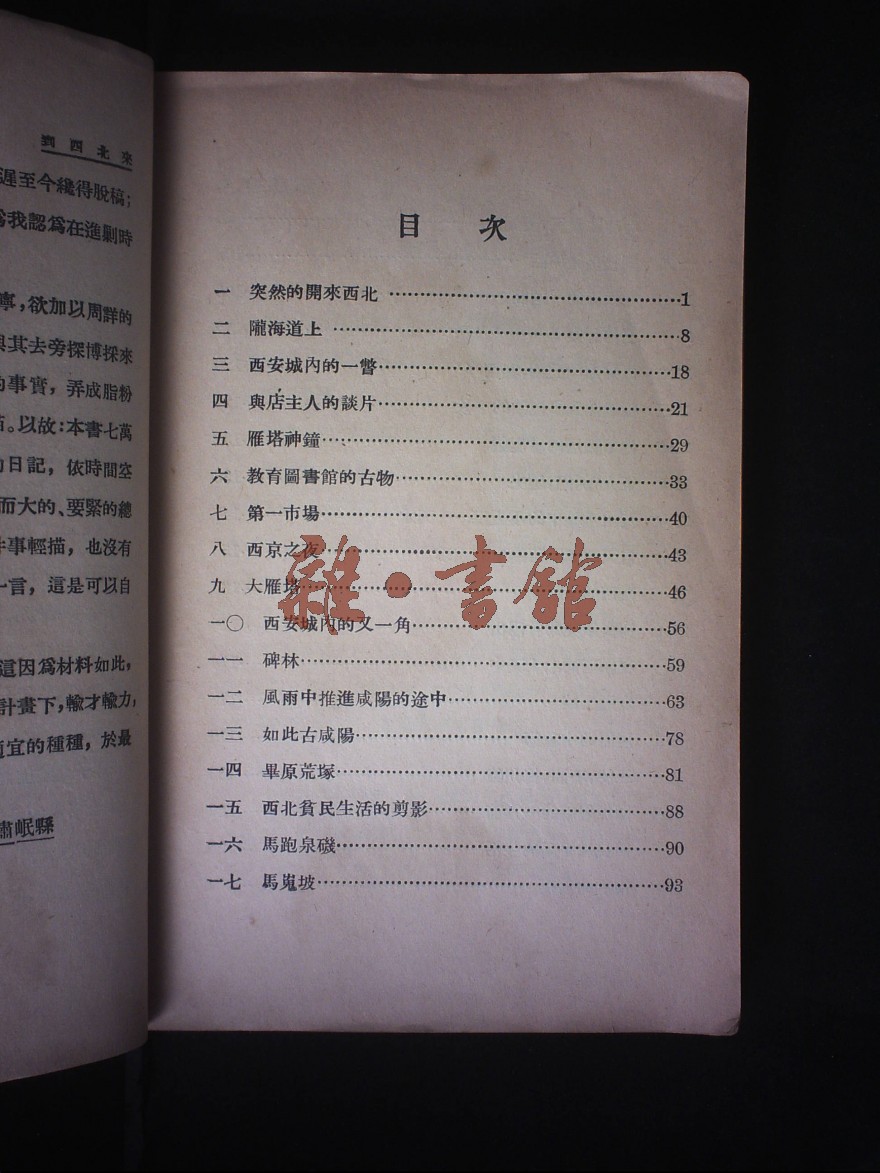 到西北來
遲至今纔得脫稿；
爲我認爲在進剿時
寧，欲加以周詳的
與其去旁探博採來
的事實，弄成脂粉
。以故：本書七萬
的日記，依時間空
而大的、要緊的總
件事輕描，也沒有
一言，這是可以自
這因爲材料如此，
計畫下，輸才輸力，
適宜的種種，於最
肅岷縣
目次
一 突然的開來西北 1
二 隴海道上 8
三 西安城內的一瞥 18
四 與店主人的談片 21
五 雁塔神鐘 29
六 教育圖書館的古物 33
七 第一市場 40
八 西京之夜 43
九 大雁塔 46
一〇 西安城內的又一角 56
一一 碑林 59
一二 風雨中推進咸陽的途中 63
一三 如此古咸陽 78
一四 畢原荒塚 81
一五 西北貧民生活的剪影 88
一六 馬跑泉磯 90
一七 馬嵬坡 93
雜·書館